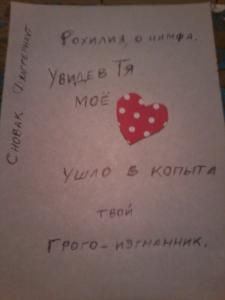 Рохилия, о нимфа.
Увидев Тя
моё
ушло в копыта
твой
Грого-изгнанник.
Сновак